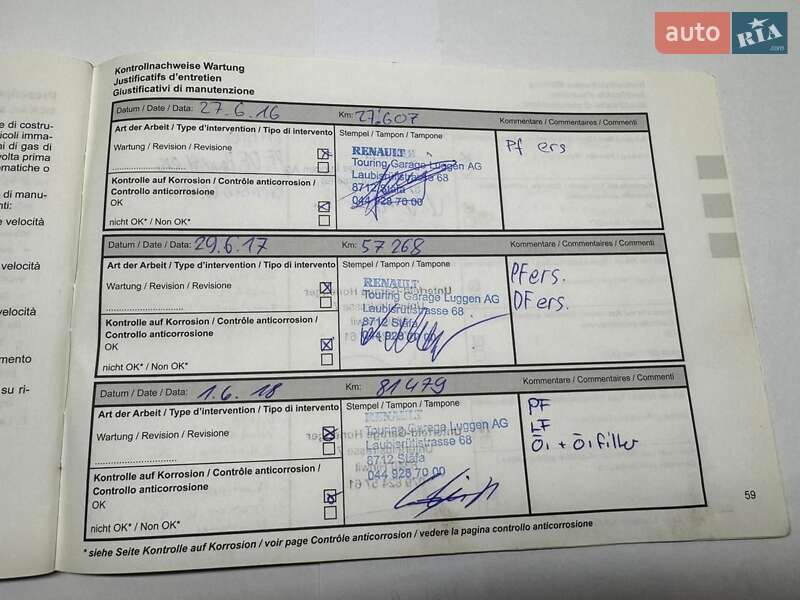 auto RIA .com
Kontrollnachweise Wartung
Justificatifs d'entretien
Giustificativi di manutenzione
Datum / Date / Data: 27.6.16 Km: 27.607 Kommentare / Commentaires / Commenti
Art der Arbeit / Type d'intervention / Tipo di intervento Stempel / Tampon / Tampone
Wartung / Revision / Revisione
Kontrolle auf Korrosion / Contrôle anticorrosion /
Controllo anticorrosione
OK
nicht OK* / Non OK*
RENAULT
Touring Garage Luggen AG
Laubisrütistrasse 68
8712 Stäfa
044 928 70 00
Pf ers
Datum / Date / Data: 29.6.17 Km: 57268 Kommentare / Commentaires / Commenti
Art der Arbeit / Type d'intervention / Tipo di intervento Stempel / Tampon / Tampone
Wartung / Revision / Revisione
Kontrolle auf Korrosion / Contrôle anticorrosion /
Controllo anticorrosione
OK
nicht OK* / Non OK*
RENAULT
Touring Garage Luggen AG
Laubisrütistrasse 68
8712 Stäfa
044 928 70 00
PF ers.
DF ers.
Datum / Date / Data: 1.6.18 Km: 81479 Kommentare / Commentaires / Commenti
Art der Arbeit / Type d'intervention / Tipo di intervento Stempel / Tampon / Tampone
Wartung / Revision / Revisione
Kontrolle auf Korrosion / Contrôle anticorrosion /
Controllo anticorrosione
OK
nicht OK* / Non OK*
RENAULT
Touring Garage Luggen AG
Laubisrütistrasse 68
8712 Stäfa
044 928 70 00
PF
LF
Öl + Ölfilter
59
* siehe Seite Kontrolle auf Korrosion / voir page Contrôle anticorrosion / vedere la pagina controllo anticorrosione
e di costru-
icoli imma-
ni di gas di
volta prima
omatiche o
di manu-
nti:
e velocità
velocità
velocità
mento
su ri-